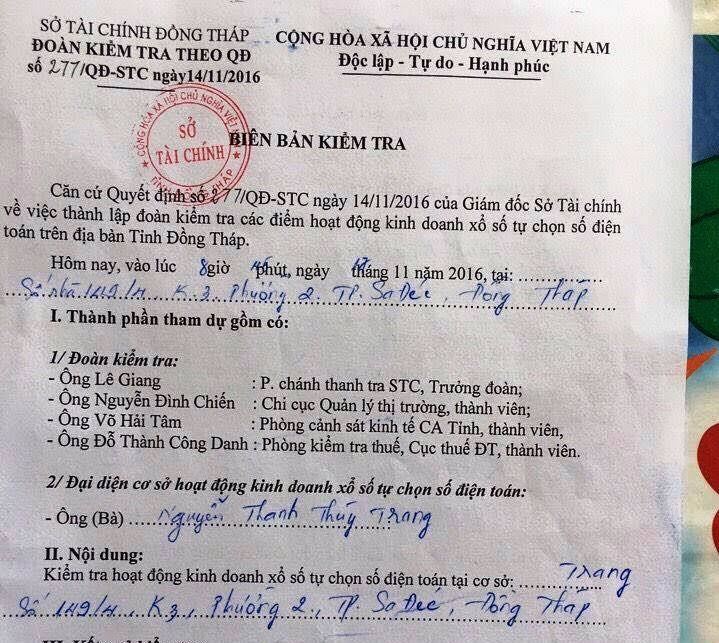 SỞ TÀI CHÍNH ĐỒNG THÁP
ĐOÀN KIỂM TRA THEO QĐ
số 277/QĐ-STC ngày14/11/2016
CỘNG HÒA XÃ HỘI CHỦ NGHĨA VIỆT NAM
Độc lập - Tự do - Hạnh phúc
CỘNG HÒA XÃ HỘI CHỦ NGHĨA VIỆT
SỞ
TÀI CHÍNH
BIÊN BẢN KIỂM TRA
Căn cứ Quyết định số 277/QĐ-STC ngày 14/11/2016 của Giám đốc Sở Tài chính
về việc thành lập đoàn kiểm tra các điểm hoạt động kinh doanh xổ số tự chọn số điện
toán trên địa bàn Tỉnh Đồng Tháp.
Hôm nay, vào lúc 8giờ phút, ngày tháng 11 năm 2016, tại: ............
Số nhà 149/4 K3, Phường 2. TP. Sa Đéc, Đồng Tháp
I. Thành phần tham dự gồm có:
1/ Đoàn kiểm tra:
- Ông Lê Giang : P. chánh thanh tra STC, Trưởng đoàn;
- Ông Nguyễn Đình Chiến : Chi cục Quản lý thị trường, thành viên;
- Ông Võ Hải Tâm : Phòng cảnh sát kinh tế CA Tỉnh, thành viên,
- Ông Đỗ Thành Công Danh : Phòng kiểm tra thuế, Cục thuế ĐT, thành viên.
2/ Đại diện cơ sở hoạt động kinh doanh xổ số tự chọn số điện toán:
- Ông (Bà) Nguyễn Thanh Thúy Trang
II. Nội dung:
Kiểm tra hoạt động kinh doanh xổ số tự chọn số điện toán tại cơ sở: Trang
Số 149/4, K3, Phường 2, TP. Sa Đéc, Đồng Tháp